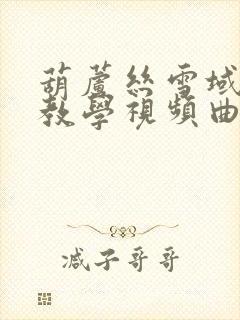 葫蘆絲雪域
教學視頻曲
减子哥哥